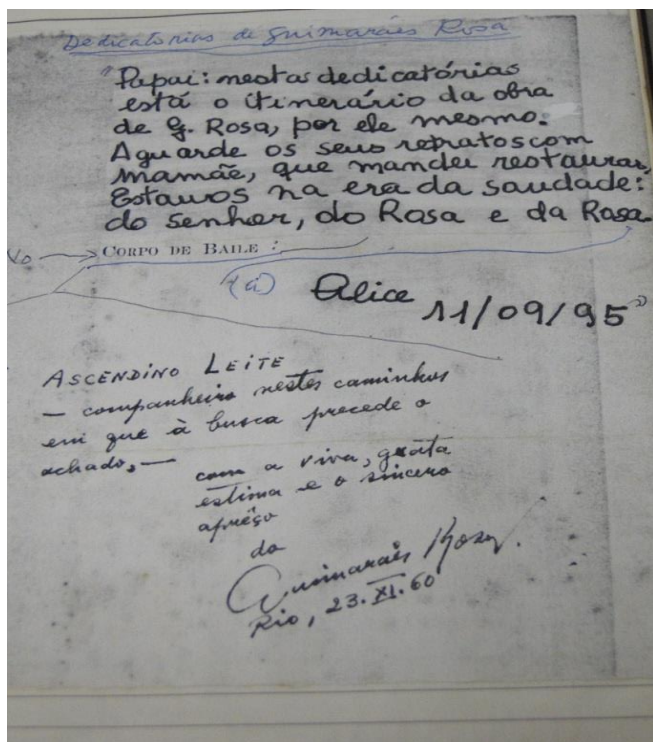 Dedicatorias de Guimarães Rosa
"Papai: nestas dedicatórias
está o itinerário da obra
de G. Rosa, por ele mesmo.
Aguarde os seus retratos com
mamãe, que mandei restaurar,
Estamos na era da saudade:
do senhor, do Rosa e da Rosa.
CORPO DE BAILE :
(a) Alice
11/09/95"
ASCENDINO LEITE
— companheiro nestes caminhos
em que à busca precede o
achado, —
com a viva, grata
estima e o sincero
aprêço
do
Guimarães Rosa.
Rio, 23.XI.60